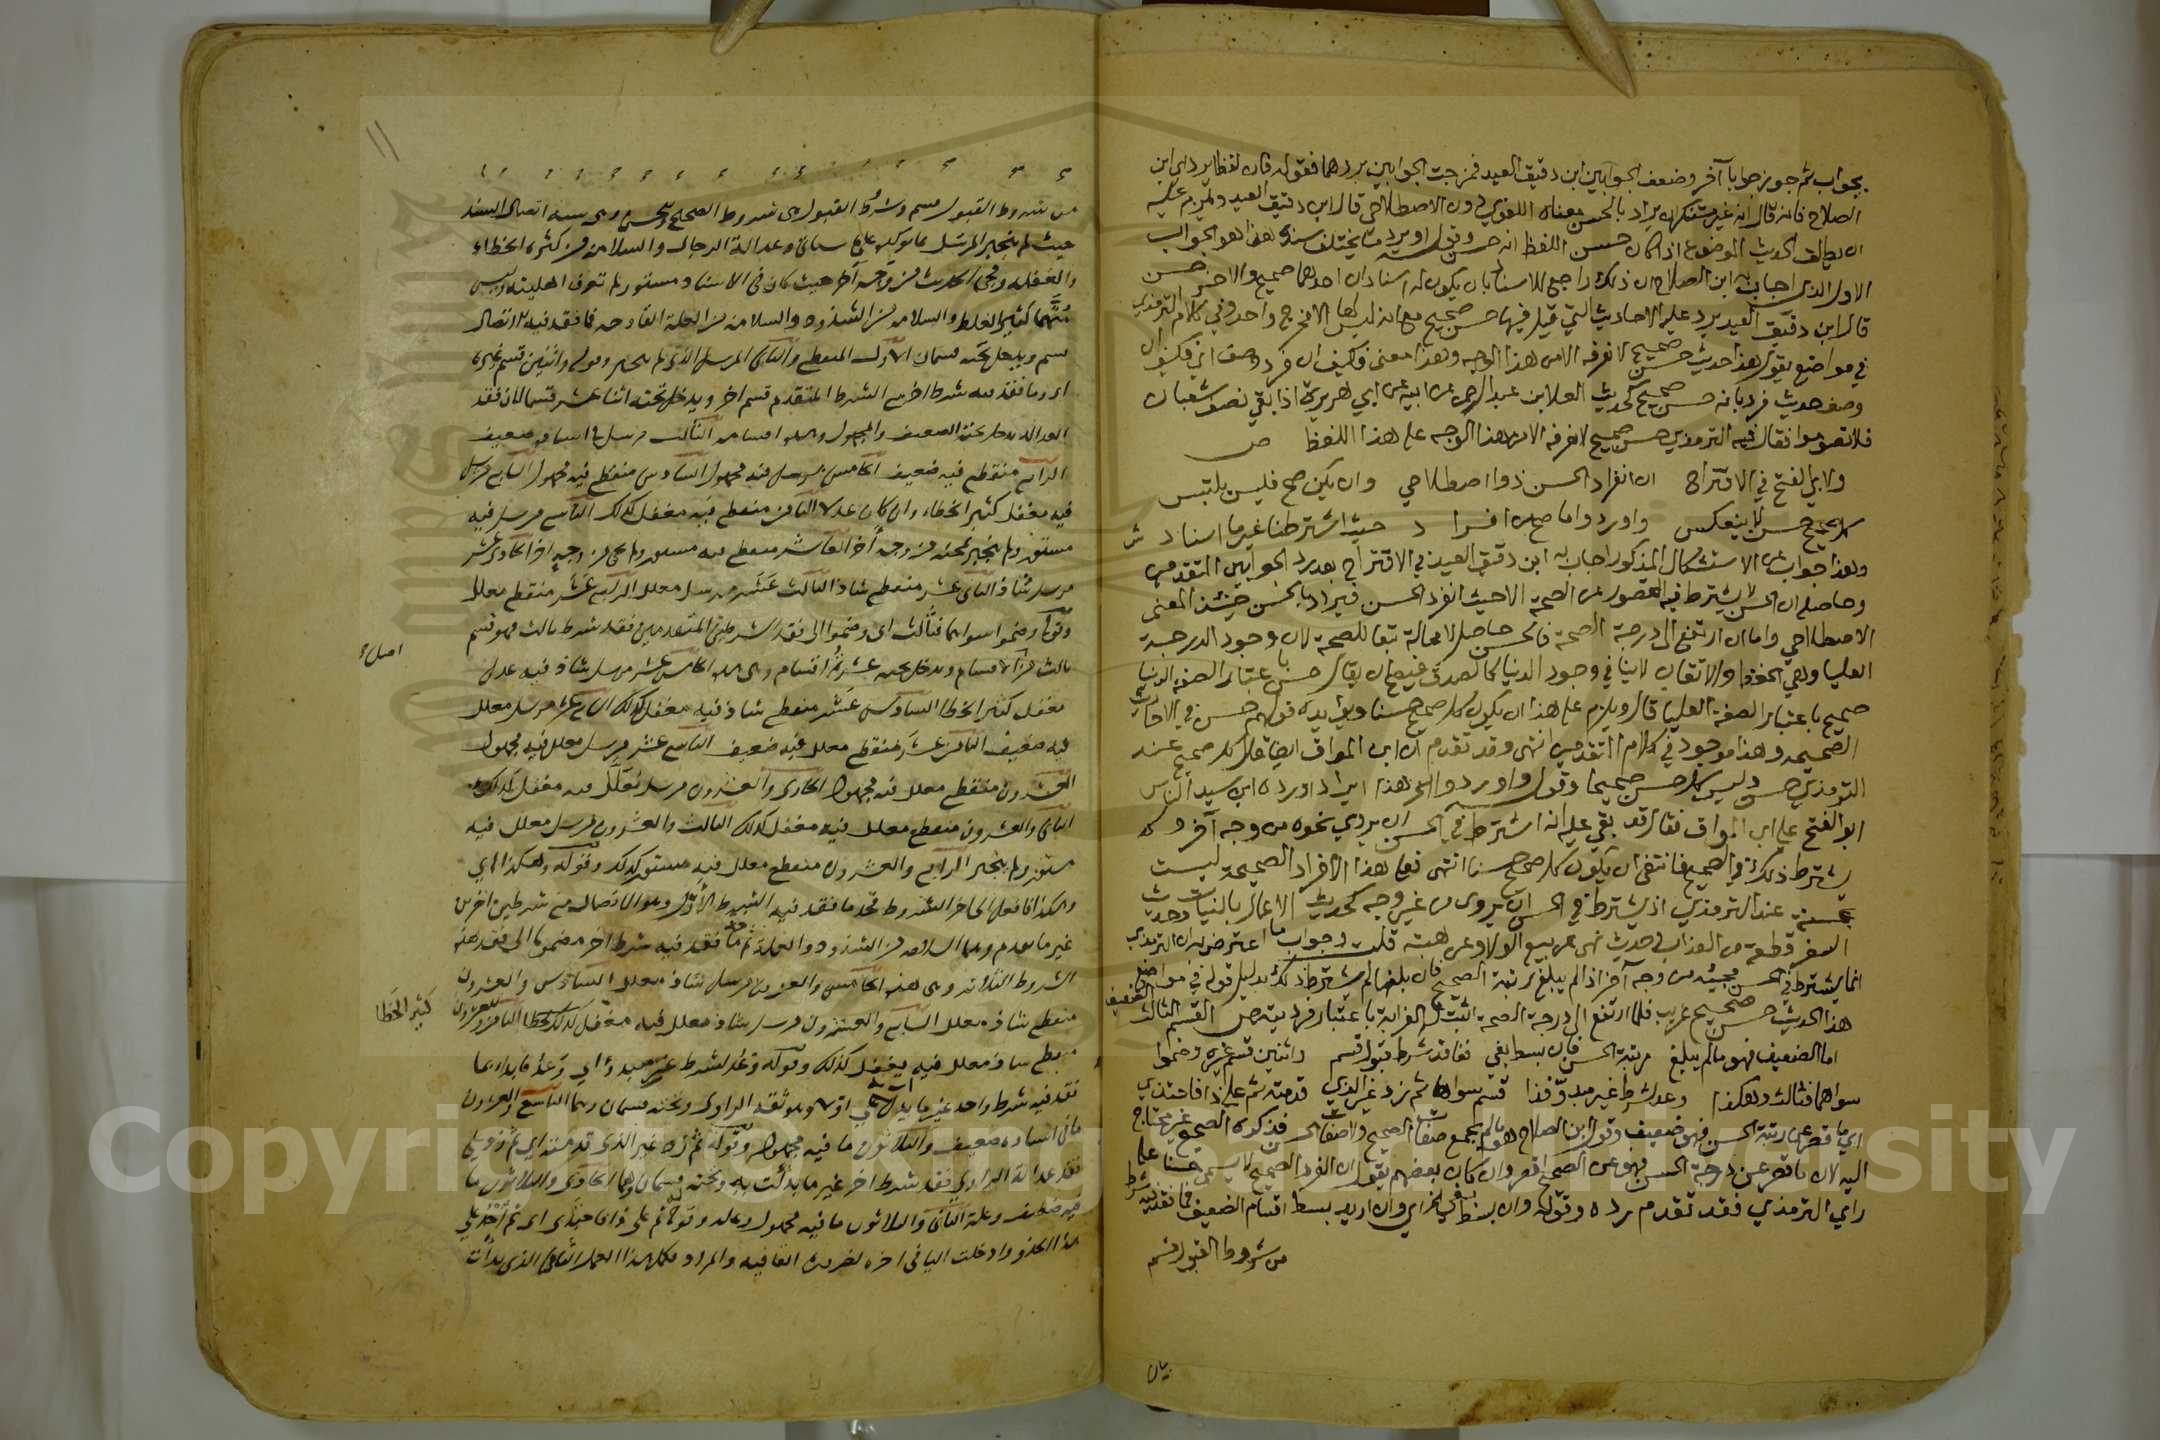 بجواب ثم جوز جوابا آخر وضعف الجوابين ابن دقيق العيد فمزجت الجوابين بردهما فقوله فان لفظا يرد اي ابن
الصلاح فانه قال انه غير مستنكر ان يراد بالحسن معناه اللغوي دون الاصطلاحي قال ابن دقيق العيد ويلزم عليه
ان يطلق الحديث الموضوع اذا كان حسن اللفظ انه حسن وقوله او يرد ما يختلف سنده هذا هو الجواب
الاول الذي اجاب به ابن الصلاح ان ذلك راجع للاسناد بان يكون له اسنادان احدهما صحيح والاخر حسن
قال ابن دقيق العيد يرد عليه الاحاديث التي قيل فيها حسن صحيح مع انه ليس لها الا مخرج واحد وفي كلام الترمذي
في مواضع يقول هذا حديث حسن صحيح لا نعرفه الا من هذا الوجه وهذا معنى فكيف ان فرد وصف اي فكيف ان
وصف حديث فرد بانه حسن صحيح كحديث العلا بن عبد الرحمن عن ابيه عن ابي هريرة اذا بقي نصف شعبان
فلا تصوموا فقال فيه الترمذي حسن صحيح لا نعرفه الا من هذا الوجه على هذا اللفظ ص
ولابي الفتح في الاقتراح ان انفراد الحسن ذو اصطلاحي وان يكن صح فليس يلتبس
كل صحيح حسن لا ينعكس واوردوا ما صح من افراد حيث اشترطنا غير ما اسناد ش
وهذا جواب عن الاستشكال المذكور اجاب به ابن دقيق العيد في الاقتراح بعد رد الجوابين المتقدمين
وحاصله ان الحسن لا يشترط فيه القصور عن الصحة الا حيث انفرد الحسن فيراد بالحسن حينئذ المعنى
الاصطلاحي واما ان ارتفع الى درجة الصحة فالحسن حاصل لا محالة تبعا للصحة لان وجود الدرجة
العليا وهي الحفظ والاتقان لا ينافي وجود الدنيا كالصدق فيصح ان يقال حسن باعتبار الصفة الدنيا
صحيح باعتبار الصفة العليا قال ويلزم على هذا ان يكون كل صحيح حسنا ويؤيده قولهم حسن في الاحاديث
الصحيحة وهذا موجود في كلام المتقدمين انتهى وقد تقدم ان ابن المواق ايضا قال كل صحيح عند
الترمذي حسن وليس كل حسن صحيحا وقوله واوردوا الخ هذا ايراد اورده ابن سيد الناس
ابو الفتح على ابن المواق فقال قد بقي عليه انه اشترط في الحسن ان يروي نحوه من وجه آخر ولم
يشترط ذلك في الصحيح فانتفى ان يكون كل صحيح حسنا انتهى فعلى هذا الافراد الصحيحة ليست
بحسنة عند الترمذي اذ يشترط في الحسن ان يروى من غير وجه كحديث الاعمال بالنيات وحديث
السفر قطعة من العذاب وحديث نهى عن بيع الولا وعن هبته قلت وجواب ما اعترض به ان الترمذي
انما يشترط في الحسن مجيئه من وجه آخر اذا لم يبلغ رتبة الصحيح فان بلغها لم يشترط ذلك بدليل قوله في مواضع
هذا الحديث حسن صحيح غريب فلما ارتفع الى درجة الصحة اثبت له الغرابة باعتبار فرديته ص القسم الثالث الضعيف
اما الضعيف فهو ما لم يبلغ مرتبة الحسن فان بسط بغي ففاقد شرط قبول قسم واثنين قسم غيره وضموا
سواهما فثالث وهكذا وعد لشرط غير مبدو فذا قسم سواها ثم زد غير الذي قدمته ثم على ذا فاحتذي
اي ما قصر عن رتبة الحسن فهو ضعيف وقول ابن الصلاح هو ما لم يجمع صفات الصحيح ولا صفات الحسن فذكره الصحيح غير محتاج
اليه لان ما قصر عن درجة الحسن فهو عن الصحيح اقصر وان كان بعضهم يقول ان الفرد الصحيح لا يسمى حسنا على
راي الترمذي فقد تقدم رده وقوله وان بسط بغي الخ اي وان اريد بسط اقسام الضعيف فما فقد فيه شرط
من شروط القبول قسم
من شروط القبول قسم وشروط القبول هي شروط الصحيح والحسن وهي ستة اتصال السند
حيث لم ينجبر المرسل بما يؤكده على ما سياتي وعدالة الرجال والسلامة من كثرة الخطاء
والغفلة ومجي الحديث من وجه آخر حيث كان في الاسناد مستور لم تعرف اهليته وليس
متهما كثير الغلط والسلامة من الشذوذ والسلامة من العلة القادحة فما فقد فيه الاتصال
قسم ويدخل تحته قسمان الاول المنقطع والثاني المرسل الذي لم ينجبر وقوله واثنين قسم غيره
اي وما فقد فيه شرط اخر مع الشرط المتقدم قسم اخر ويدخل تحته اثنا عشر قسما لان فقد
العدالة يدخل تحته الضعيف والمجهول وهذه اقسامه الثالث مرسل في اسناده ضعيف
الرابع منقطع فيه ضعيف الخامس مرسل فيه مجهول السادس منقطع فيه مجهول السابع مرسل
فيه مغفل كثير الخطاء وان كان عدلا الثامن منقطع فيه مغفل كذلك التاسع مرسل فيه
مستور ولم ينجبر بمجيئه من وجه آخر العاشر منقطع فيه مستور ولم يجئ من وجه اخر الحادي عشر
مرسل شاذ الثاني عشر منقطع شاذ الثالث عشر مرسل معلل الرابع عشر منقطع معلل
وقوله وضموا سواهما فثالث اي وضموا الى فقد الشرطين المتقدمين فقد شرط ثالث فهو قسم
ثالث من اصل الاقسام ويدخل تحته عشرة اقسام وهي هذه الخامس عشر مرسل شاذ فيه عدل
مغفل كثير الخطا السادس عشر منقطع شاذ فيه مغفل كذلك السابع عشر مرسل معلل
فيه ضعيف الثامن عشر منقطع معلل فيه ضعيف التاسع عشر مرسل معلل فيه مجهول
العشرون منقطع معلل فيه مجهول الحادي والعشرون مرسل معلل فيه مغفل كذلك
الثاني والعشرون منقطع معلل فيه مغفل كذلك الثالث والعشرون مرسل معلل فيه
مستور ولم ينجبر الرابع والعشرون منقطع معلل فيه مستور كذلك وقوله وهكذا اي
وهكذا فافعل الى اخر الشروط فخذ ما فقد فيه الشرط الأول وهو الاتصال مع شرطين اخرين
غير ما تقدم وهما السلامة من الشذوذ والعلة ثم خذ ما فقد فيه شرط آخر مضموما الى فقد هذه
الشروط الثلاثة وهي هذه الخامس والعشرون مرسل شاذ معلل السادس والعشرون
منقطع شاذ معلل السابع والعشرون مرسل شاذ معلل فيه مغفل كذلك الثامن والعشرون
كثير الخطا
منقطع شاذ معلل فيه مغفل كذلك وقوله وعد لشرط غير مبدؤ اي وعد فابدا بما
فقد فيه شرط واحد غير ما بدات به اولا وهو ثقة الراوي وتحته قسمان وهما التاسع والعشرون
ما في اسناده ضعيف والثلاثون ما فيه مجهول وقوله ثم زد غير الذي قدمته اي ثم زد على
فقد عدالة الراوي فقد شرط اخر غير ما بدأت به وتحته قسمان وهما الحادي والثلاثون ما
فيه ضعيف وعلة الثاني والثلاثون ما فيه مجهول وعلة وقوله ثم على ذا فاحتذي اي ثم احذ على
هذا الحذو وادخلت اليا في اخره لضرورة القافية والمراد فكمل هذا العمل الثاني الذي بدأت